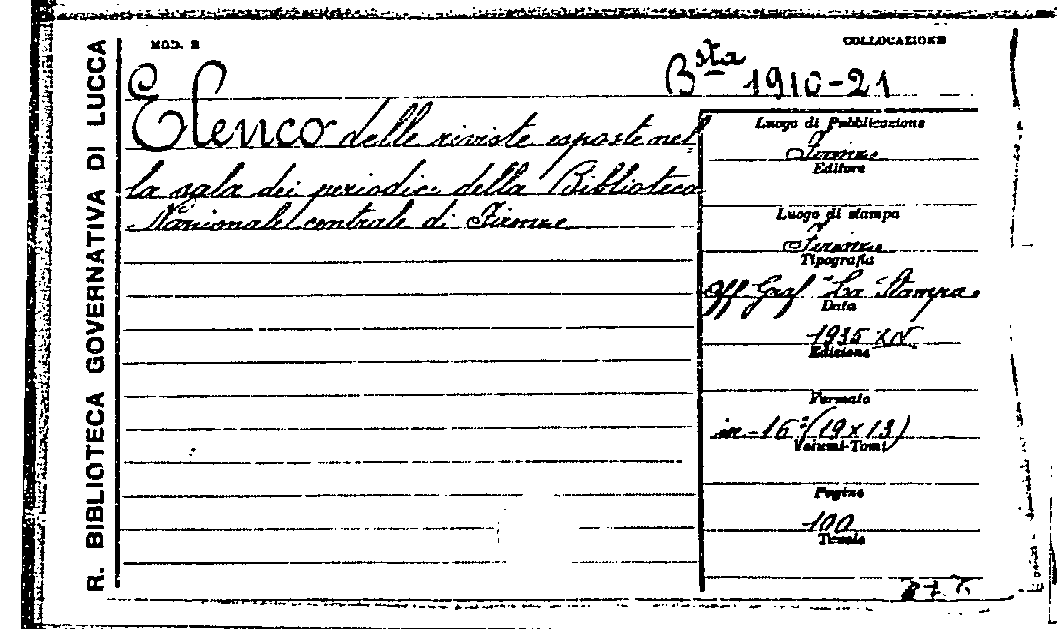 R. BIBLIOTECA GOVERNATIVA DI LUCCA
MOD. 2
COLLOCAZIONE
Bsta 1910-21
Elenco delle riviste esposte nel
la sala dei periodici della Biblioteca
Nazionale centrale di Firenze
Luogo di Pubblicazione
Firenze
Editore
Luogo di stampa
Firenze
Tipografia
Off Graf "La Stampa"
Data
1935 XIV
Edizione
Formato
in-16°(19x13)
Volumi-Tomi
Pagine
100
Tavole